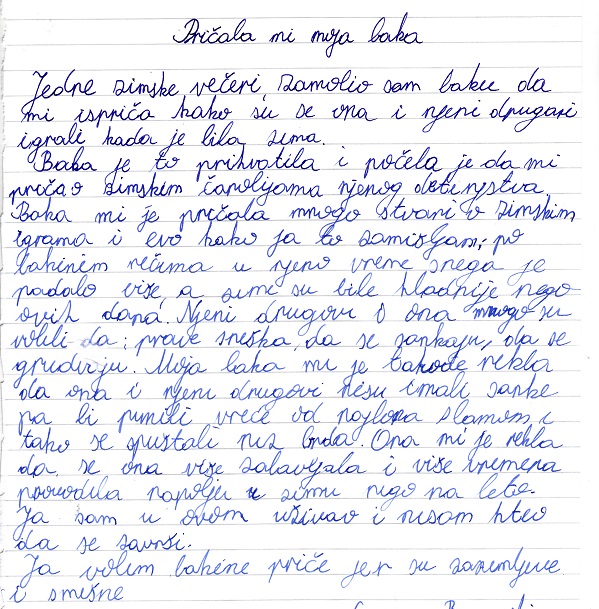 Pričala mi moja baka
Jedne zimske večeri, zamolio sam baku da
mi ispriča kako su se ona i njeni drugari
igrali kada je bila zima.
Baka je to prihvatila i počela je da mi
priča o zimskim čarolijama njenog detinjstva.
Baka mi je pričala mnogo stvari o zimskim
igrama i evo kako ja to zamišljam; po
bakinim rečima u njeno vreme snega je
padalo više, a zime su bile hladnije nego
ovih dana. Njeni drugovi i ona mnogo su
volili da: prave sneška, da se sankaju, da se
grudvaju. Moja baka mi je takođe rekla
da ona i njeni drugovi nisu imali sanke
pa bi punili vreće od najlona slamom i
tako se spuštali niz brda. Ona mi je rekla
da se ona više zabavljala i više vremena
provodila napolju u zimu nego na leto.
Ja sam u ovom uživao i nisam hteo
da se završi.
Ja volim bakine priče jer su zanimljive
i smešne